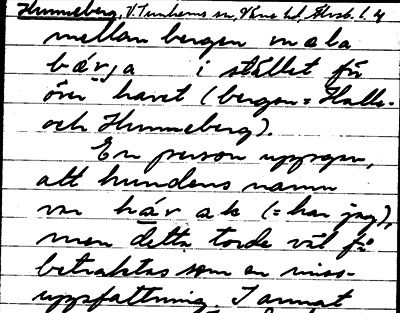 Hunneberg, V. Tunhems sn, Väne hd, Älvsb. l. 4
mellan bergen va ba
bärja i stället för
över havet (bergen = Halle-
och Hunneberg).
En person uppgen,
att hundens namn
var här ak (= har jag),
men detta torde väl få
betraktas som en miss-
uppfattning. I annat